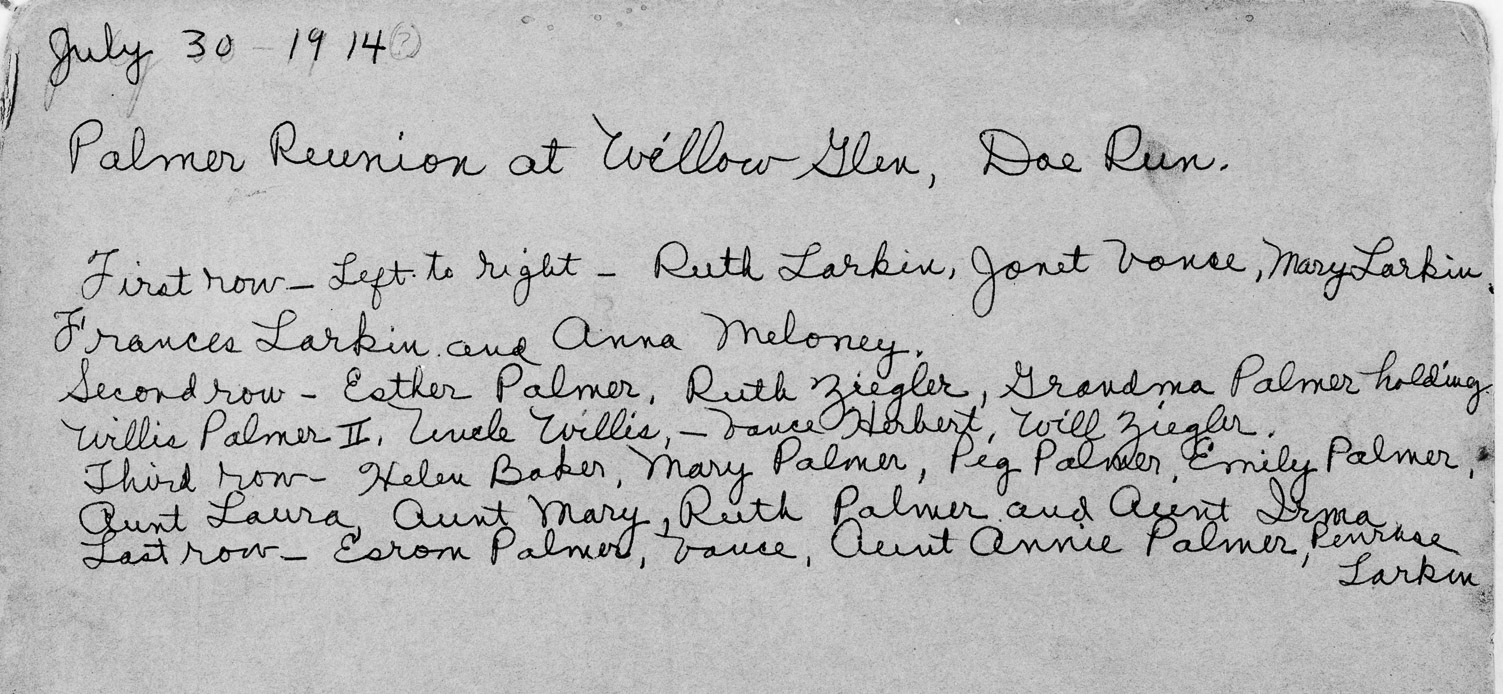 July 30 - 1914 (?)
Palmer Reunion at Willow Glen, Doe Run.
First row - Left to right - Ruth Larkin, Janet Vance, Mary Larkin.
Frances Larkin and Anna Meloney.
Second row - Esther Palmer, Ruth Ziegler, Grandma Palmer holding
Willis Palmer II, Uncle Willis, - Vance Herbert, Will Ziegler.
Third row - Helen Baker, Mary Palmer, Peg Palmer, Emily Palmer,
Aunt Laura, Aunt Mary, Ruth Palmer and Aunt Irma
Last row - Esrom Palmer, Vance, Aunt Annie Palmer, Penrose
Larkin